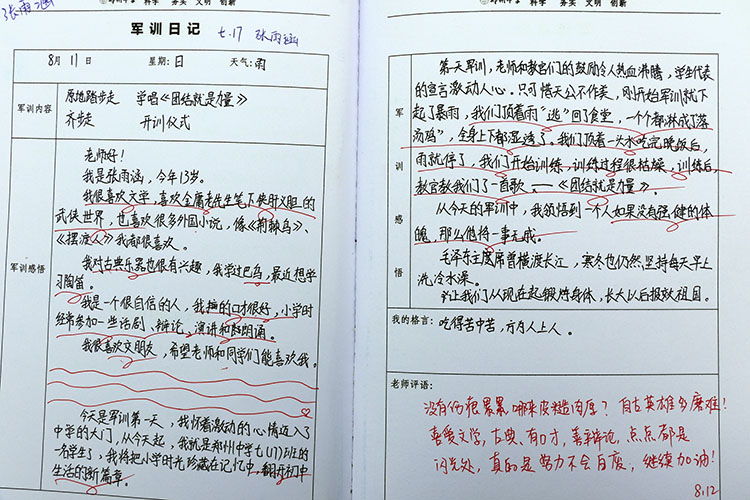 张雨涵
军训日记
七.17 张雨涵
8月11日 星期:日 天气:雨
军训内容
原地踏步走 学唱《团结就是力量》
齐步走 开训仪式
军训感悟
老师好!
我是张雨涵,今年13岁。
我很喜欢文学,喜欢金庸老先生笔下侠肝义胆的
武侠世界,也喜欢很多外国小说,像《荆棘鸟》、
《摆渡人》我都很喜欢。
我对古典乐器也很有兴趣,我学过巴乌,最近想学
习陶笛。
我是一个很自信的人,我的口才很好,小学时
经常参加一些话剧、辩论、演讲和朗诵。
我很喜欢交朋友,希望老师和同学们能喜欢我。
今天是军训第一天,我怀着激动的心情迈入了
中学的大门,从今天起,我就是郑州中学七(17)班的
一名学生了,我将把小学时光珍藏在记忆中,翻开初中
生活的新篇章。
科学 务实 文明 创新
军训感悟
第一天军训,老师和教官们的鼓励令人热血沸腾,学生代表
的宣言激动人心。只可惜天公不作美,刚开始军训就下
起了暴雨,我们顶着雨“逃”回了食堂,一个个都淋成了落
汤鸡”,全身上下都湿透了。我们顶着一头水吃完晚饭后,
雨就停了,我们开始训练,训练过程很枯燥,训练后
教官教我们了一首歌——《团结就是力量》。
从今天的军训中,我领悟到一个人如果没有强健的体
魄,那么他将一事无成。
毛泽东主席曾横渡长江,寒冬也仍然坚持每天早上
洗冷水澡。
让我们从现在起锻炼身体,长大以后报效祖国。
我的格言:吃得苦中苦,方为人上人。
老师评语:
没有伤痕累累,哪来皮糙肉厚?自古英雄多磨难!
喜爱文学,古典,有口才,喜辩论,点点都是
闪光处,真的是努力不会白废,继续加油!
8.12